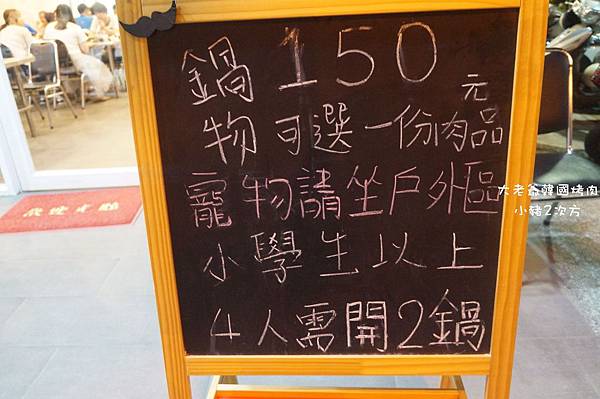 鍋150
元
物可選一份肉品
寵物請坐戶外區
小學生以上
4人需開2鍋
大老爺韓國烤肉
小豬2次方
歡迎光臨